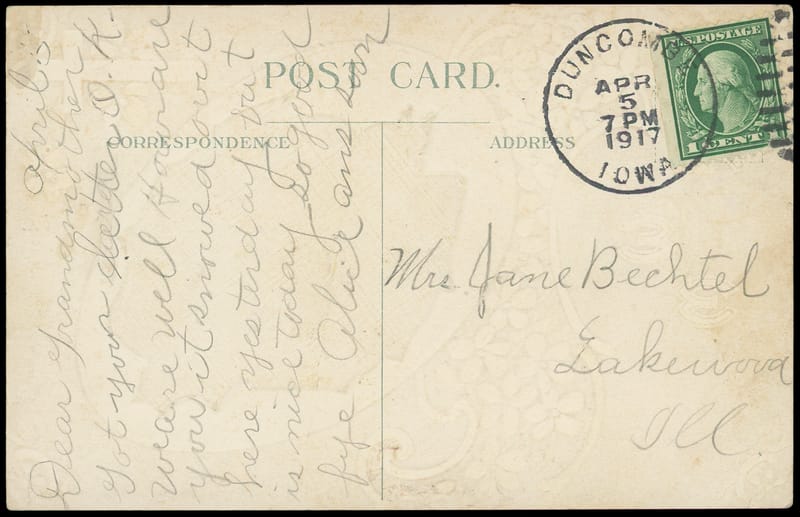 POST CARD.
CORRESPONDENCE
ADDRESS
DUNCOMBE
APR
5
7 PM
1917
IOWA
U.S. POSTAGE
1 CENT 1
April 5
Dear grandmother
got your letter O.K.
we are well How are
you it snowed out
here yesterday but
is nice today so good
bye Alice ans soon
Mrs Jane Bechtel
Lakewood
Ill